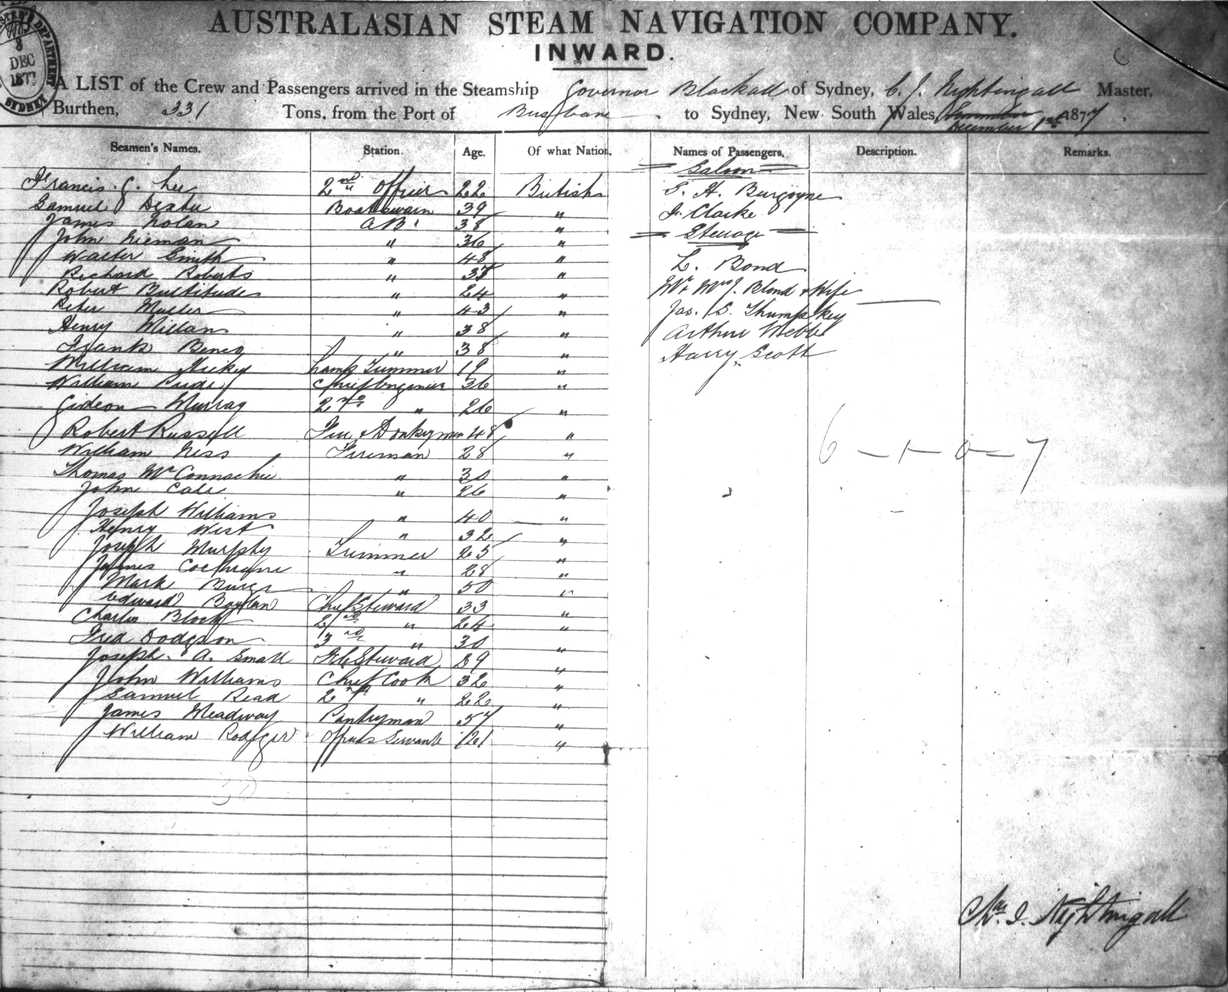 AUSTRALASIAN STEAM NAVIGATION COMPANY.
INWARD.
8 DEC 187
SYDNEY
A LIST of the Crew and Passengers arrived in the Steamship Governor Blackall of Sydney, C. J. Nightingall Master,
Burthen, 331 Tons, from the Port of Brisbane to Sydney, New South Wales, December 1st 1877
Seamen's Names. Station. Age. Of what Nation. Names of Passengers. Description. Remarks.
Saloon
Francis G. Lee 2nd Officer 22 British S. H. Burgoyne
Samuel Boatswain 39 " J. Clarke
James Nolan AB. 38 " Steerage
John " 36 "
Walter Smith " 48 " L. Bond
Richard Roberts " "
Robert Bultitude " 24 " Mr & Mrs J. Blond & Wife
Peter Muller " 43 " Jas. S.
Henry Willans " 38 " Arthur Webb
Frank " 38 " Harry Scott
William Hicky Lamp Trimmer 19 "
William Chief Engineer 36 "
Gideon Murray 2nd " 26 "
Robert Russell Fire & Donkeyman 48 "
William Fireman 28 " 6 - 1 - 0 - 7
Thomas McConnachie " 30 "
John " 26 "
Joseph Williams " 40 "
Henry West " 32 "
Joseph Murphy Trimmer 25 "
James Cochrane " 28 "
Mark " 50 "
Edward Boylan Chief Steward 33 "
Charles Block 2nd " 24 "
Fred Dodgson 3rd " 30 "
Joseph A. Small F.C. Steward 29 "
John Williams Chief Cook 32 "
Samuel Read 2nd " 22 "
James Meadway Pantryman 57 "
William Rodger Officers Servant 21 "
30
Chs. J. Nightingall